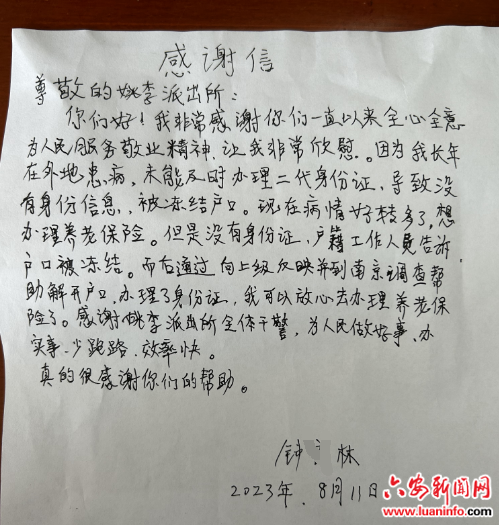 感谢信
尊敬的姚李派出所:
你们好!我非常感谢你们一直以来全心全意
为人民服务敬业精神,让我非常欣慰。因为我长年
在外地患病,未能及时办理二代身份证,导致没
有身份信息,被冻结户口。现在病情好转多了,想
办理养老保险。但是没有身份证,户籍工作人员告诉
户口被冻结。而后通过向上级反映并到南京调查帮
助解开户口,办理了身份证,我可以放心去办理养老保
险了。感谢姚李派出所全体干警,为人民做好事、办
实事、少跑路、效率快。
真的很感谢你们的帮助。
钟 林
2023年8月11日
六安新闻网
www.luaninfo.com